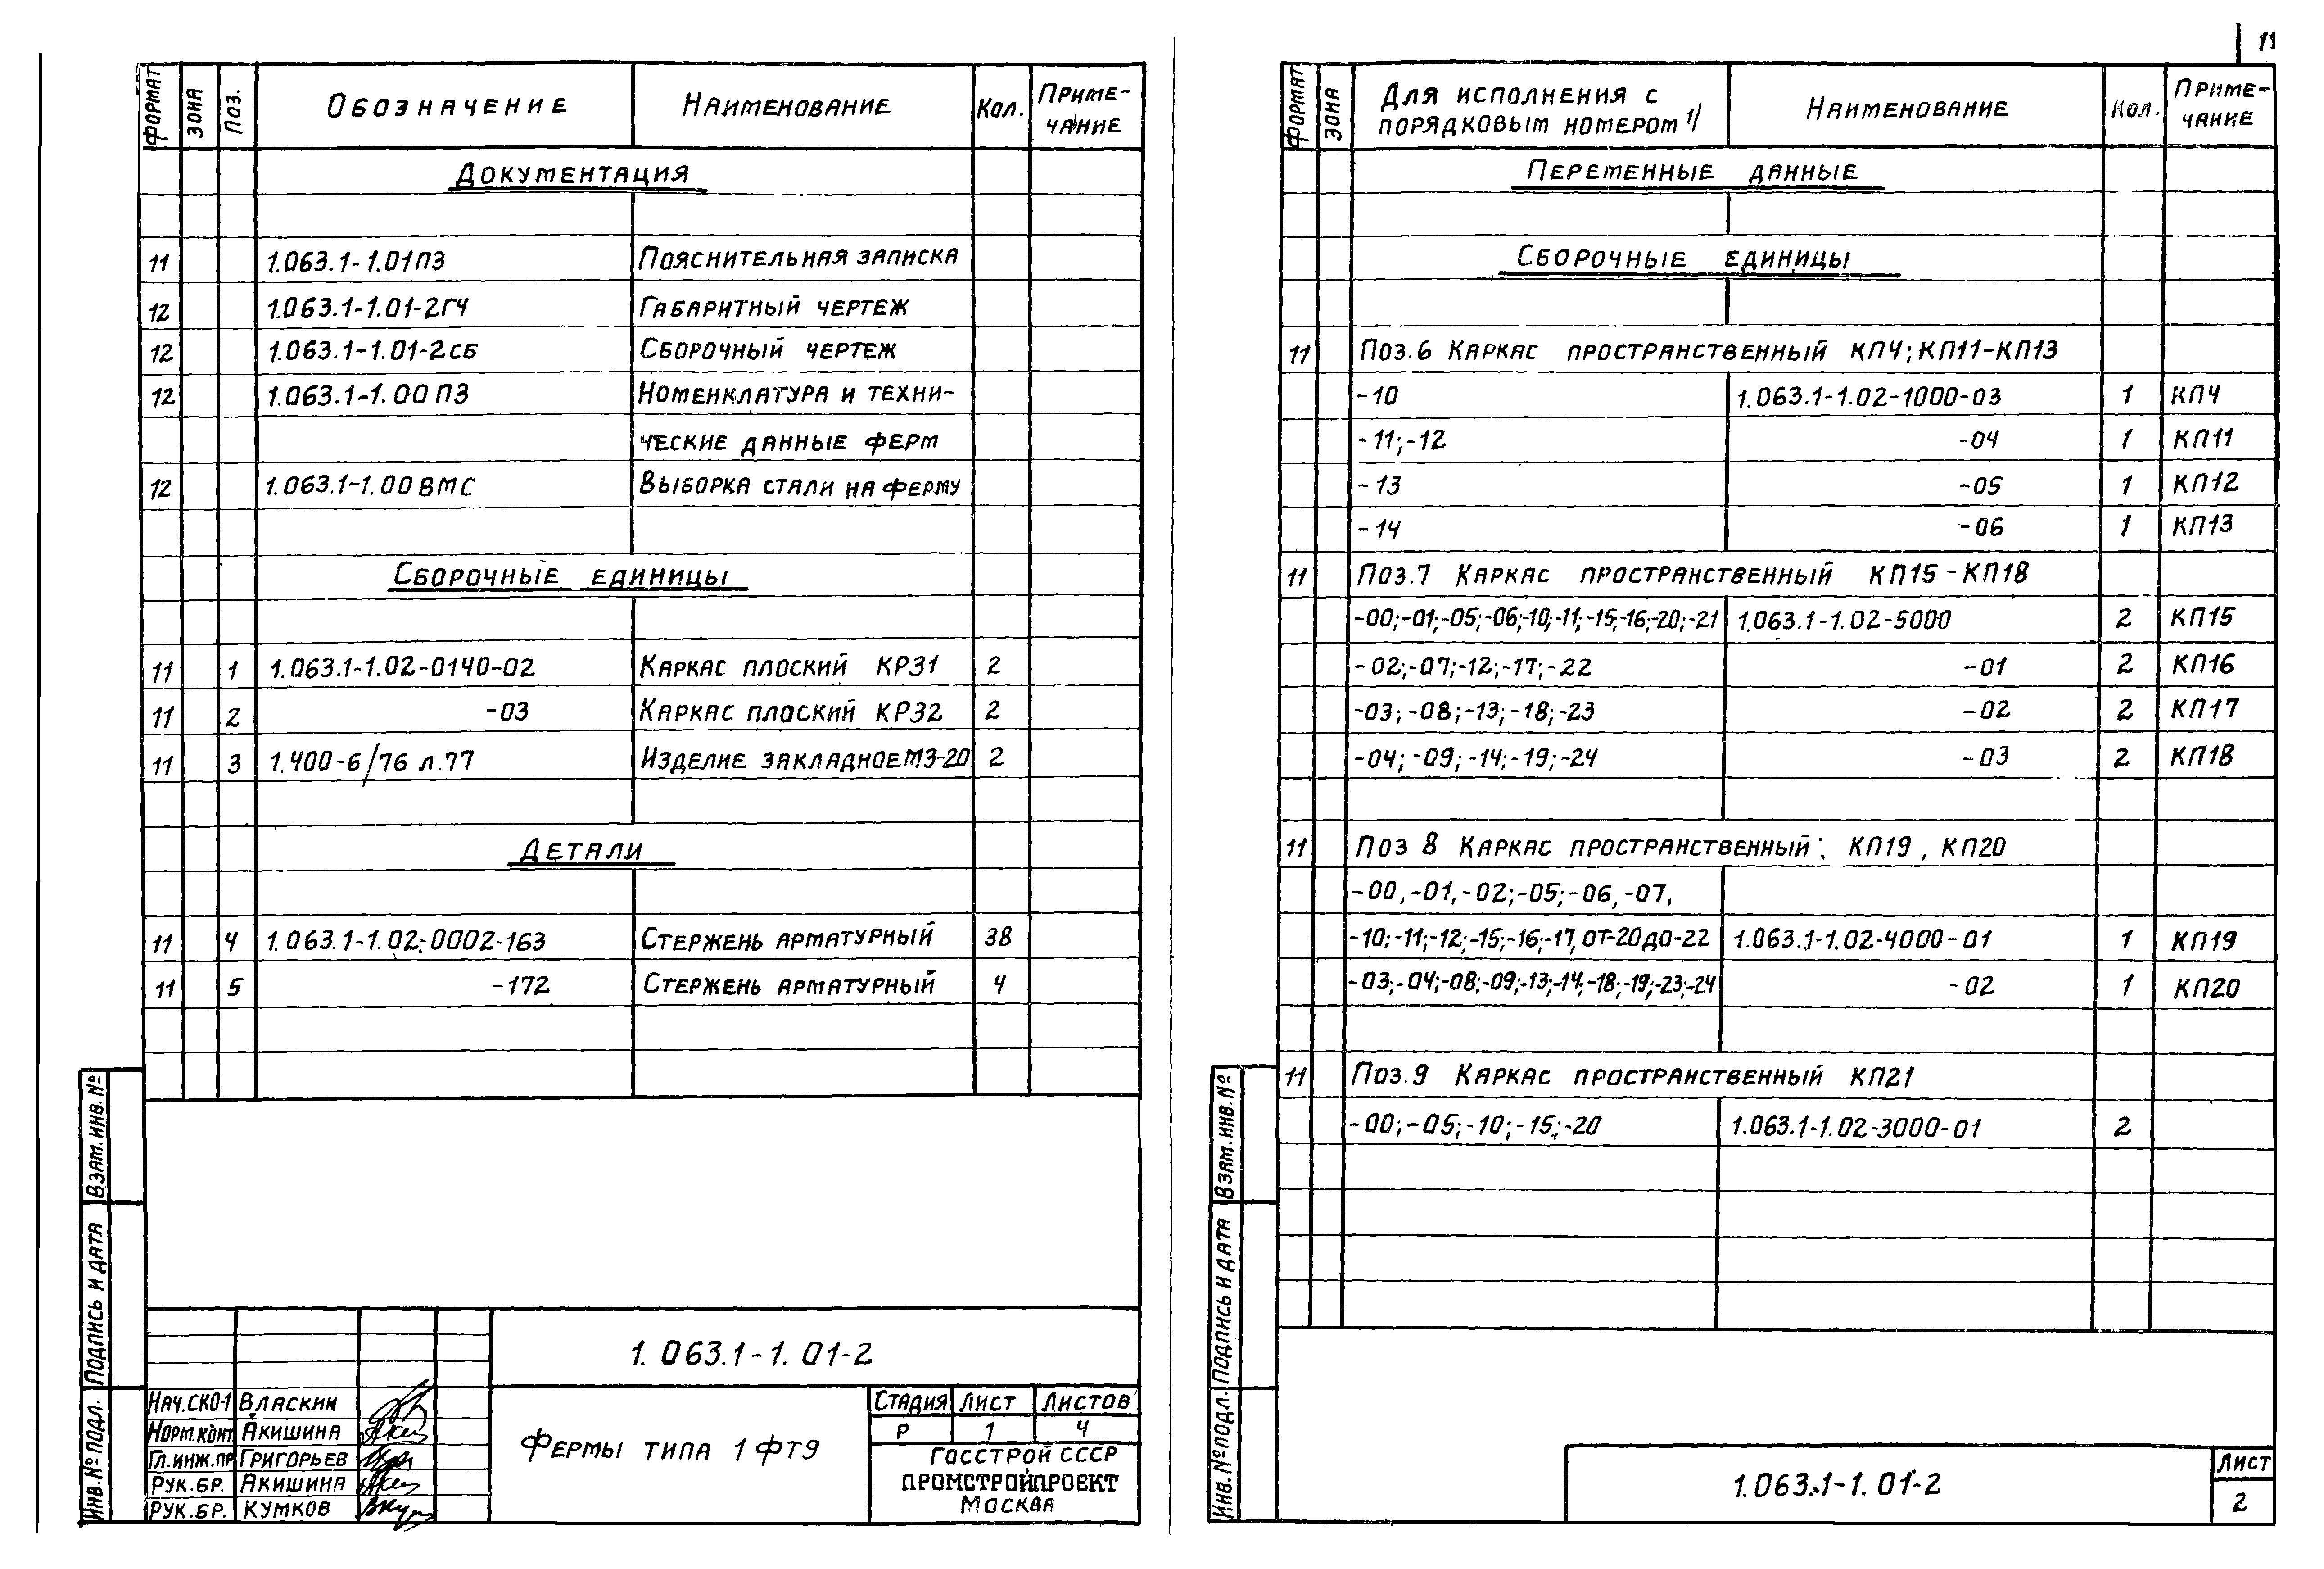 11
ФОРМАТ ЗОНА ПОЗ. ОБОЗНАЧЕНИЕ НАИМЕНОВАНИЕ КОЛ. ПРИМЕ-
ЧАНИЕ
ДОКУМЕНТАЦИЯ
11 1.063.1-1.01ПЗ ПОЯСНИТЕЛЬНАЯ ЗАПИСКА
12 1.063.1-1.01-2ГЧ ГАБАРИТНЫЙ ЧЕРТЕЖ
12 1.063.1-1.01-2СБ СБОРОЧНЫЙ ЧЕРТЕЖ
12 1.063.1-1.00ПЗ НОМЕНКЛАТУРА И ТЕХНИ-
ЧЕСКИЕ ДАННЫЕ ФЕРМ
12 1.063.1-1.00ВМС ВЫБОРКА СТАЛИ НА ФЕРМУ
СБОРОЧНЫЕ ЕДИНИЦЫ
11 1 1.063.1-1.02-0140-02 КАРКАС ПЛОСКИЙ КР31 2
11 2 -03 КАРКАС ПЛОСКИЙ КР32 2
11 3 1.400-6/76 Л.77 ИЗДЕЛИЕ ЗАКЛАДНОЕ МЗ-20 2
ДЕТАЛИ
11 4 1.063.1-1.02-0002-163 СТЕРЖЕНЬ АРМАТУРНЫЙ 38
11 5 -172 СТЕРЖЕНЬ АРМАТУРНЫЙ 4
ВЗАМ.ИНВ.№
ПОДПИСЬ И ДАТА
ИНВ.№ПОДЛ.
1.063.1-1.01-2
НАЧ.СКО-1 ВЛАСКИН
НОРМ.КОНТ АКИШИНА
ГЛ.ИНЖ.ПР ГРИГОРЬЕВ
РУК.БР. АКИШИНА
РУК.БР. КУМКОВ
ФЕРМЫ ТИПА 1ФТ9
СТАДИЯ ЛИСТ ЛИСТОВ
Р 1 4
ГОССТРОЙ СССР
ПРОМСТРОЙПРОЕКТ
МОСКВА
ФОРМАТ ЗОНА ДЛЯ ИСПОЛНЕНИЯ С НАИМЕНОВАНИЕ КОЛ. ПРИМЕ-
ПОРЯДКОВЫМ НОМЕРОМ 1) ЧАНИЕ
ПЕРЕМЕННЫЕ ДАННЫЕ
СБОРОЧНЫЕ ЕДИНИЦЫ
11 ПОЗ.6 КАРКАС ПРОСТРАНСТВЕННЫЙ КП4; КП11-КП13
-10 1.063.1-1.02-1000-03 1 КП4
-11;-12 -04 1 КП11
-13 -05 1 КП12
-14 -06 1 КП13
11 ПОЗ.7 КАРКАС ПРОСТРАНСТВЕННЫЙ КП15-КП18
-00;-01;-05;-06;-10;-11;-15;-16;-20;-21 1.063.1-1.02-5000 2 КП15
-02;-07;-12;-17;-22 -01 2 КП16
-03;-08;-13;-18;-23 -02 2 КП17
-04;-09;-14;-19;-24 -03 2 КП18
11 ПОЗ 8 КАРКАС ПРОСТРАНСТВЕННЫЙ: КП19, КП20
-00,-01,-02;-05;-06,-07,
-10;-11;-12;-15;-16;-17, ОТ-20 ДО-22 1.063.1-1.02-4000-01 1 КП19
-03;-04;-08;-09;-13;-14,-18;-19;-23;-24 -02 1 КП20
11 ПОЗ.9 КАРКАС ПРОСТРАНСТВЕННЫЙ КП21
-00;-05;-10;-15;-20 1.063.1-1.02-3000-01 2
ВЗАМ.ИНВ.№
ПОДПИСЬ И ДАТА
ИНВ.№ПОДЛ.
1.063.1-1.01-2
ЛИСТ
2